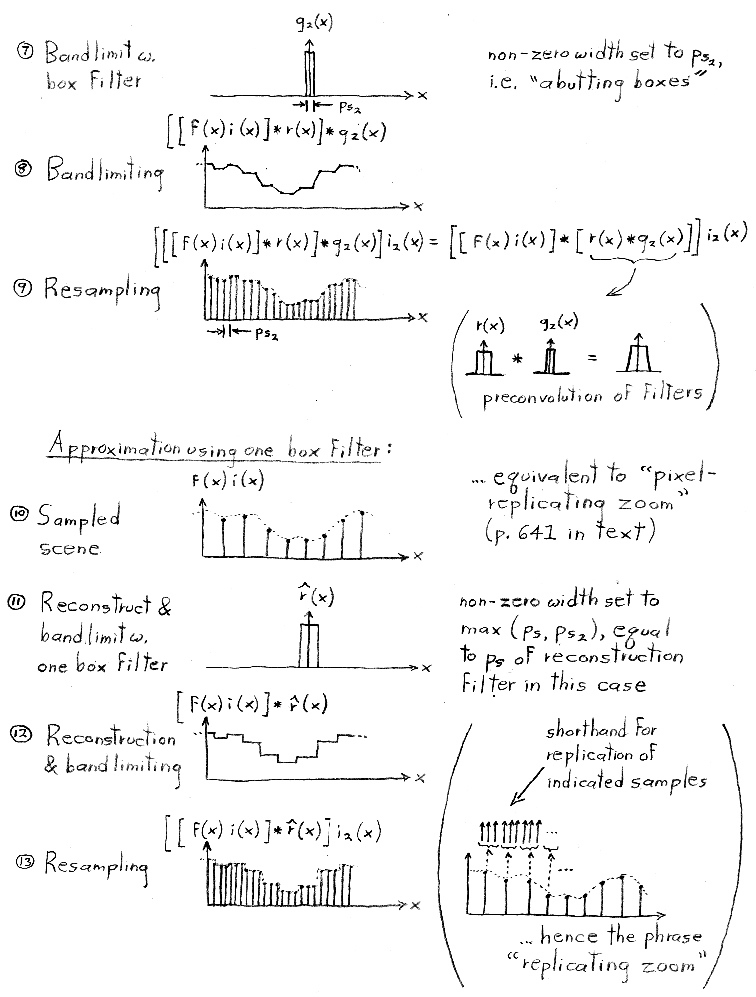 g₂(x)
⑦ Bandlimit w.
box filter
x
ps₂
non-zero width set to ps₂,
i.e. "abutting boxes"
[[f(x)i(x)]*r(x)]*g₂(x)
⑧ Bandlimiting
x
[[[f(x)i(x)]*r(x)]*g₂(x)]i₂(x) = [[f(x)i(x)]*[r(x)*g₂(x)]]i₂(x)
⑨ Resampling
x
ps₂
r(x) g₂(x)
* =
preconvolution of filters
Approximation using one box filter:
f(x)i(x)
⑩ Sampled
scene
x
... equivalent to "pixel-
replicating zoom"
(p. 641 in text)
r̂(x)
⑪ Reconstruct &
bandlimit w.
one box filter
x
non-zero width set to
max (ps, ps₂), equal
to ps of reconstruction
filter in this case
[f(x)i(x)]*r̂(x)
⑫ Reconstruction
& bandlimiting
x
[[f(x)i(x)]*r̂(x)]i₂(x)
⑬ Resampling
x
shorthand for
replication of
indicated samples
...
...
... hence the phrase
"replicating zoom"